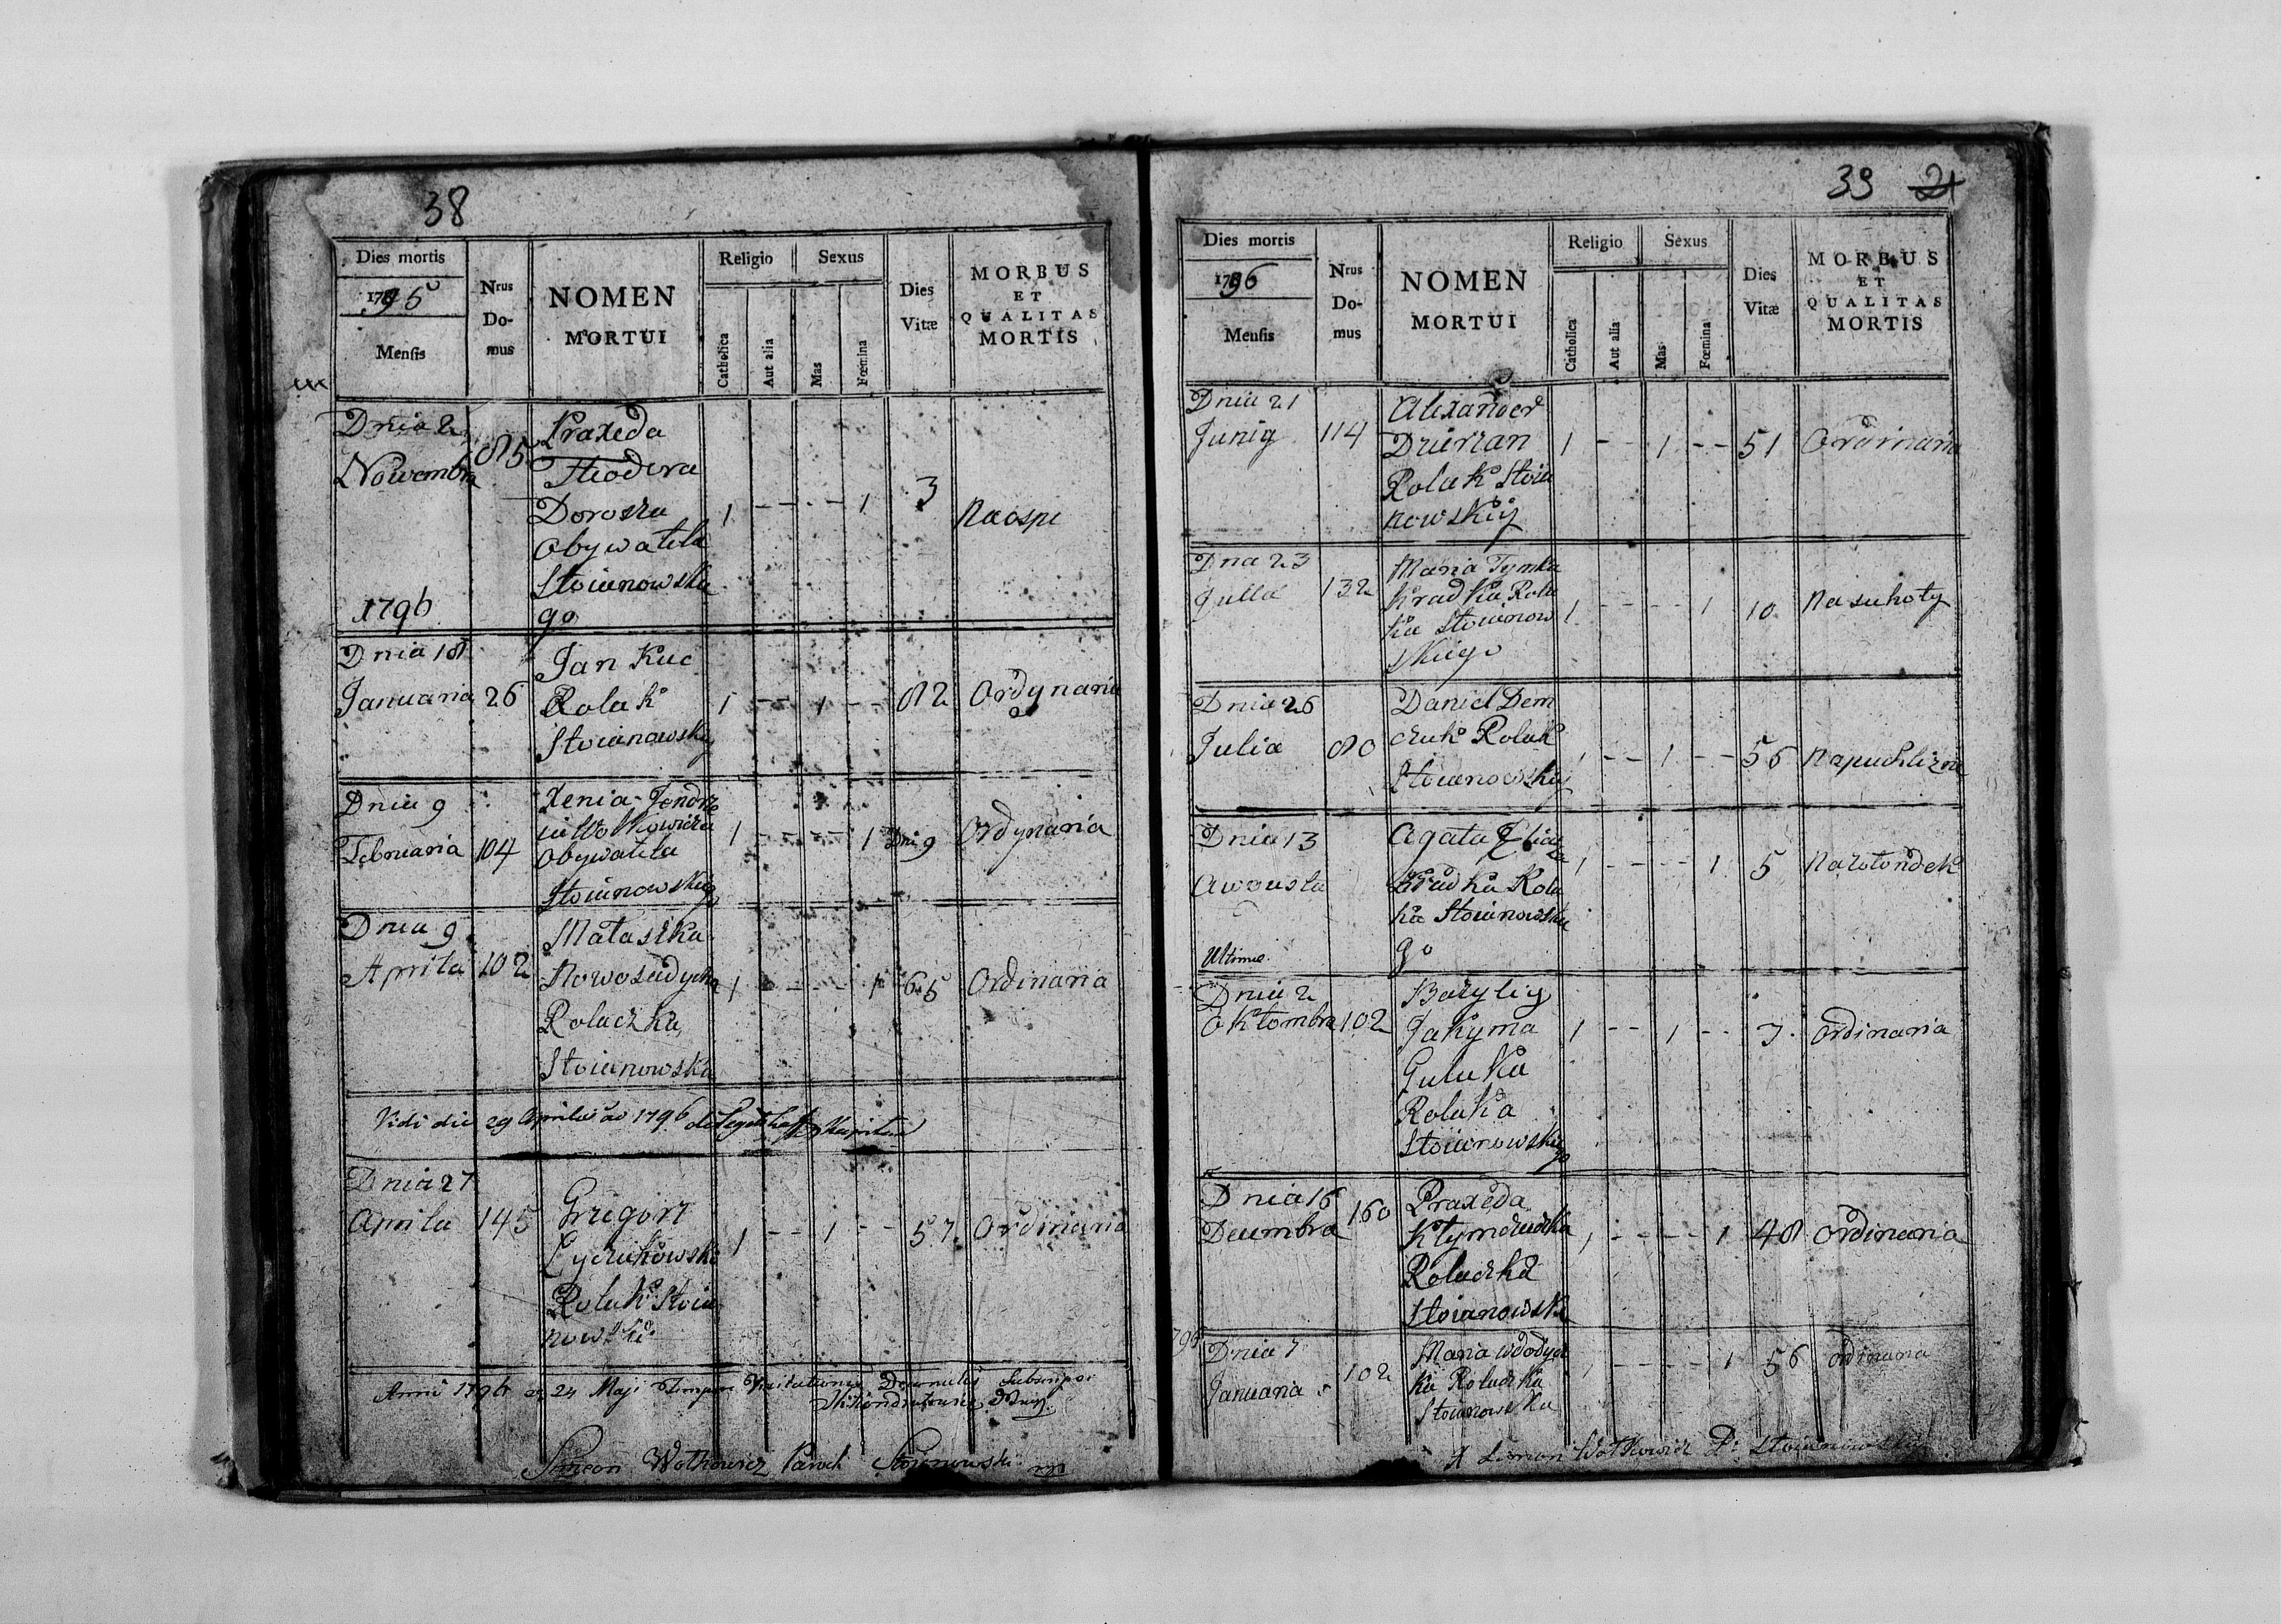 38
Dies mortis
1795
Mensis
Nrus
Do-
mus
NOMEN
MORTUI
Religio
Catholica
Aut alia
Sexus
Mas
Fœmina
Dies
Vitæ
MORBUS
ET
QUALITAS
MORTIS
Dnia 2
Nowembra
85
Praxeda
Theodora
Doroska
Obywatela
Stoianowska
go
1 - - - - 1
3
Na ospe
1796
Dnia 18
Januaria
26
Jan Kuc
Rolak
Stoianowsky
1 - - 1 - -
82
Ordynaria
Dnia 9
Februaria
104
Xenia
Wolkowicza
Obywatela
Stoianowskiego
1 - - - - 1
Dni 9
Ordynaria
Dnia 9
Aprila
102
Nowosadycha
Rolaczka
Stoianowska
1 - - - - 1
65
Ordinaria
Vidi die 29 Aprilis ao 1796
Dnia 27
Aprila
145
Gregori
Rolak Stoia
nowski
1 - - 1 - -
57
Ordinaria
Anno 1796 24 Maji Tempore Visitationis Decanalis Subscripsi
Simeon Wolkowicz Paroch Stoianowski mp
39 21
Dies mortis
1796
Mensis
Nrus
Do-
mus
NOMEN
MORTUI
Religio
Catholica
Aut alia
Sexus
Mas
Fœmina
Dies
Vitæ
MORBUS
ET
QUALITAS
MORTIS
Dnia 21
Juniy
114
Alexander
Rolak Stoia
nowskiy
1 - - 1 - -
51
Ordinaria
Dna 23
132
Maria Tymka
Kradka Rola
ka Stoianow
skiego
1 - - - - 1
10
Na suhoty
Dnia 26
Julia
80
Daniel Dem
czuk Rolak
Stoianowskiy
1 - - 1 - -
56
Na puchlizne
Dnia 13
Awgusta
Agata
Kradka Rola
ka Stoianowska
go
1 - - - - 1
5
Ultima
Dnia 2
Oktombra
102
Bazyliy
Jakyma
Guluka
Rolaka
Stoianowskiego
1 - - 1 - -
7
Ordinaria
Dnia 16
Decembra
160
Praxeda
Klymczuczka
Rolaczka
Stoianowska
1 - - - - 1
48
Ordinaria
Dnia 7
Januaria
102
Maria
Rolaczka
Stoianowska
1 - - - - 1
56
Ordinaria
X Simon Wolkowicz P: Stoianowski